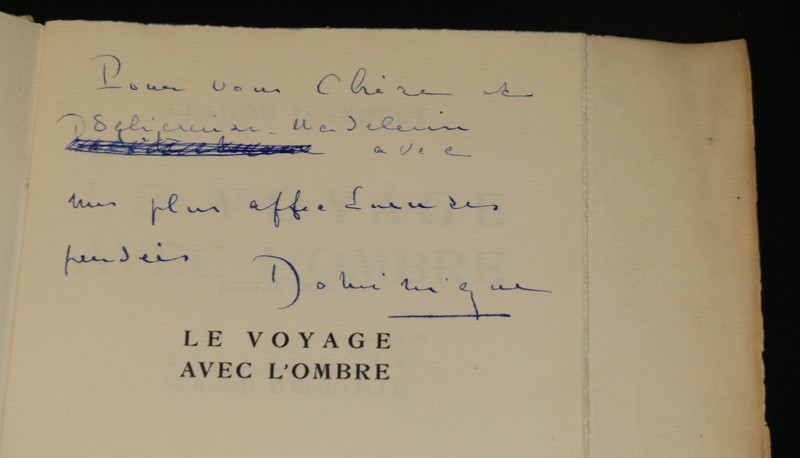 Pour vous Chère et
Religieuse Madeleine
avec
mes plus affectueuses
pensées
Dominique
LE VOYAGE
AVEC L'OMBRE